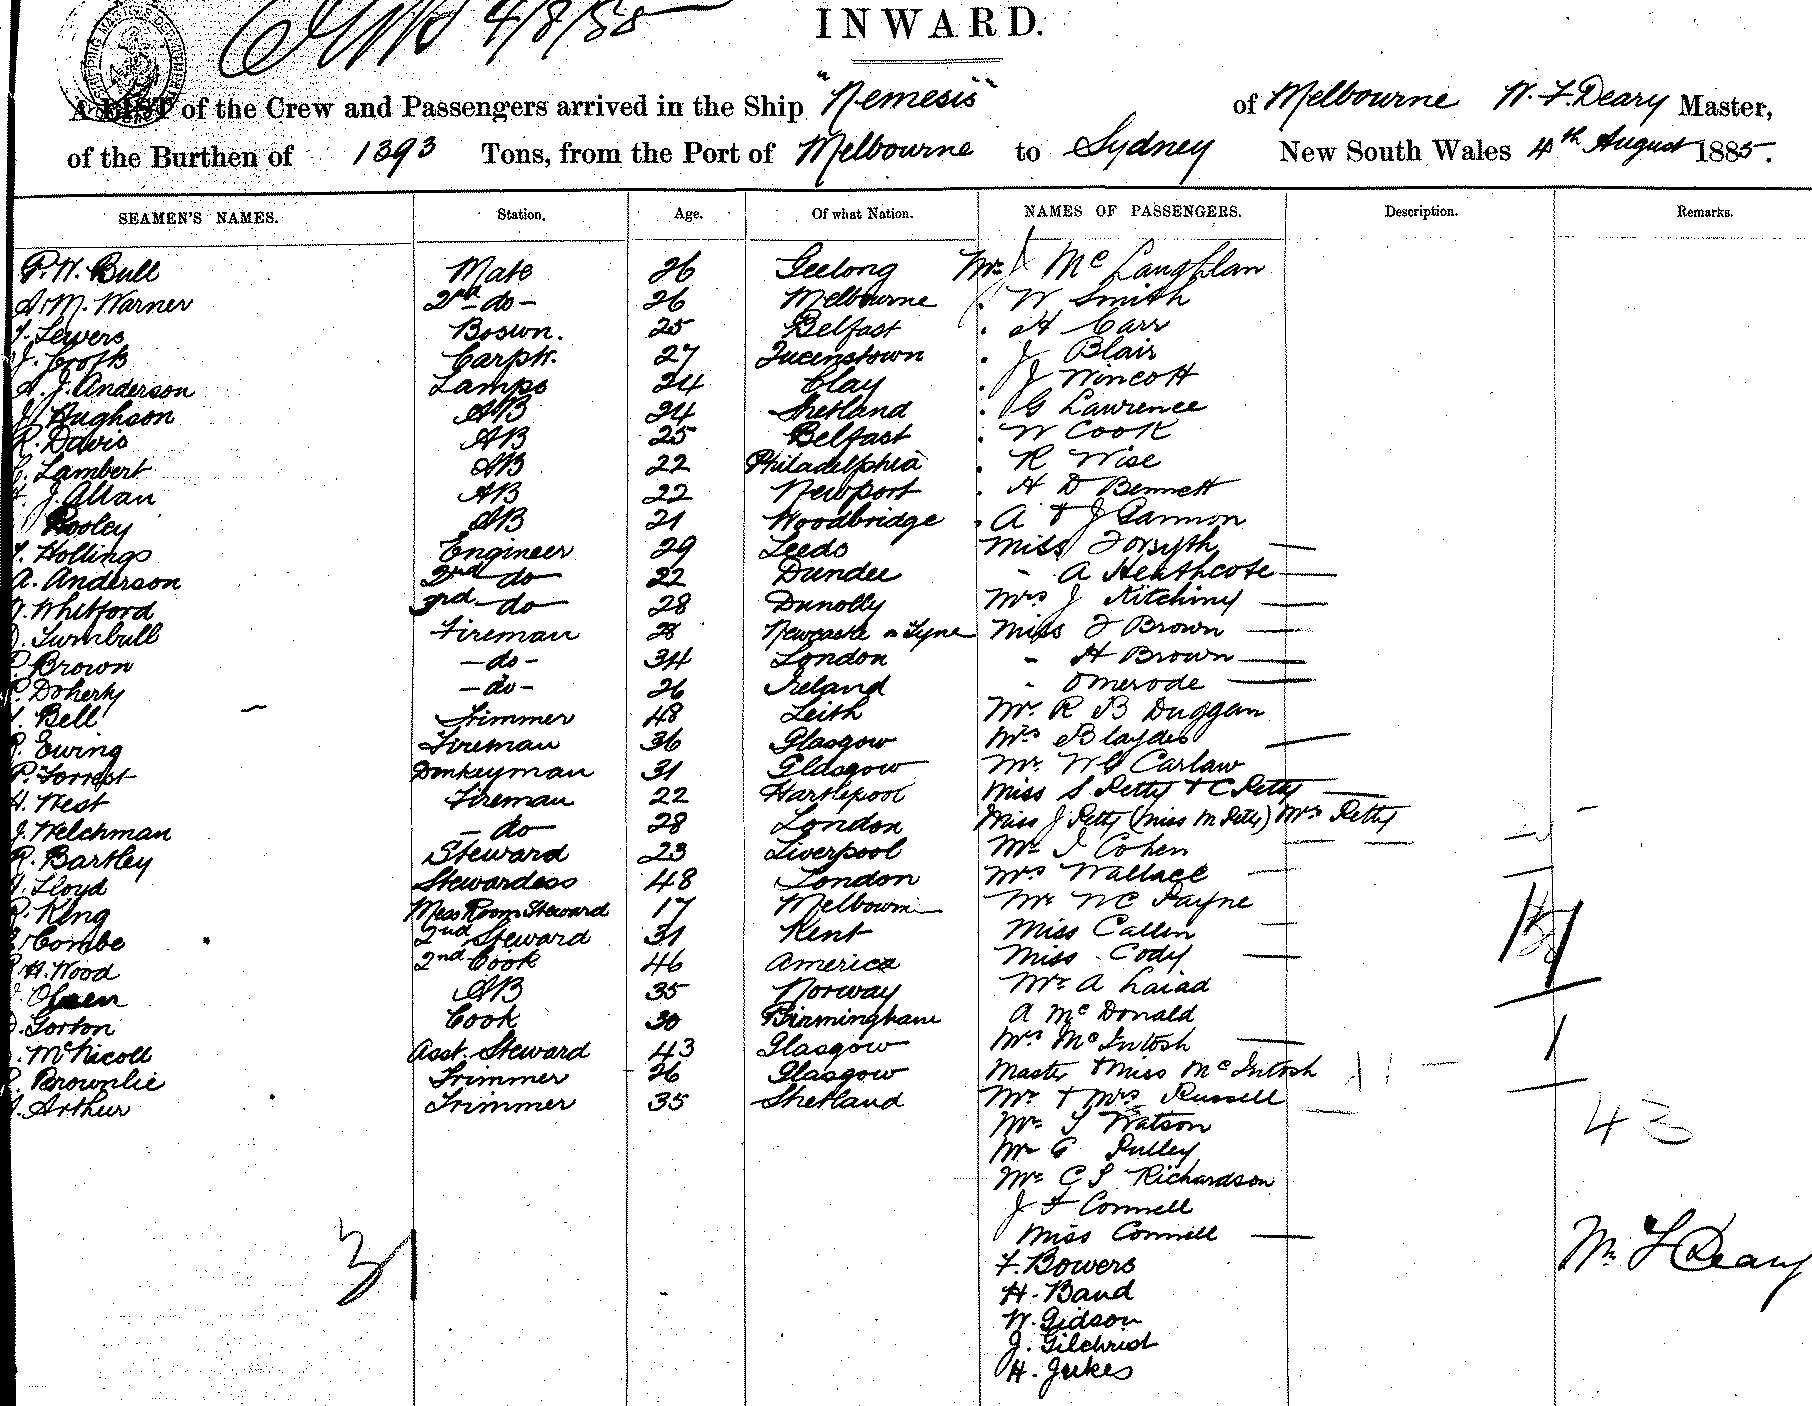 4/8/85
INWARD.
A LIST of the Crew and Passengers arrived in the Ship "Nemesis" of Melbourne W. F. Deary Master,
of the Burthen of 1393 Tons, from the Port of Melbourne to Sydney New South Wales 4th August 1885.
SEAMEN'S NAMES. Station. Age. Of what Nation. NAMES OF PASSENGERS. Description. Remarks.
P. W. Bull Mate 26 Geelong Mr J McLaughlan
A. M. Warner 2nd -do- 26 Melbourne " W Smith
Lewers Boswn. 25 Belfast " H Carr
J. Crofts Carptr. 27 Queenstown " J Blair
A. J. Anderson Lamps 24 Clay " J Wincott
J. Hughson AB 24 Shetland " G Lawrence
R. Davis AB 25 Belfast " W Cook
Lambert AB 22 Philadelphia " R Wise
J. Allan AB 22 Newport " H D Bennett
Pooley AB 21 Woodbridge " A & J Gannon
Hollings Engineer 29 Leeds Miss Forsyth —
A. Anderson 2nd do 22 Dundee " A Heathcote —
Whitford 3rd do 28 Dunolly Mrs J Kitching —
Turnbull Fireman 28 Newcastle on Tyne Miss F Brown —
Brown -do- 34 London " H Brown —
P. Doherty -do- 26 Ireland " Omerode —
Bell Trimmer 48 Leith Mr. R B Duggan
R. Ewing Fireman 36 Glasgow Mrs Blaydes —
P. Forrest Donkeyman 31 Glasgow Mr. W G Carlaw
H. West Fireman 22 Hartlepool Miss S Petty & C Petty —
J. Welchman -do- 28 London Miss J Petty (Miss M Petty) Mrs Petty
R. Bartley Steward 23 Liverpool Mr I Cohen
Lloyd Stewardess 48 London Mrs Wallace —
R. King Mess Room Steward 17 Melbourne Mr W C Payne
Combe 2nd Steward 31 Kent Miss Callen —
H. Wood 2nd Cook 46 America Miss Cody —
Olsen AB 35 Norway Mr A Laiad
Gorton Cook 30 Birmingham A McDonald
McNicoll Asst. Steward 43 Glasgow Mrs McIntosh —
R. Brownlie Trimmer 26 Glasgow Master & Miss McIntosh
Arthur Trimmer 35 Shetland Mr & Mrs Russell
43
Mr S Watson
Mr G Pulley
Mr C S Richardson
J F Connell
31 Miss Connell — Wm F Deary
F. Bowers
H. Band
W. Gidson
J. Gilchrist
H. Jukes